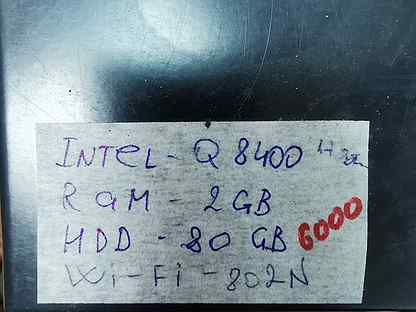 INTEL - Q 8400
RAM - 2GB
HDD - 80 GB 6000
Wi-Fi - 802N